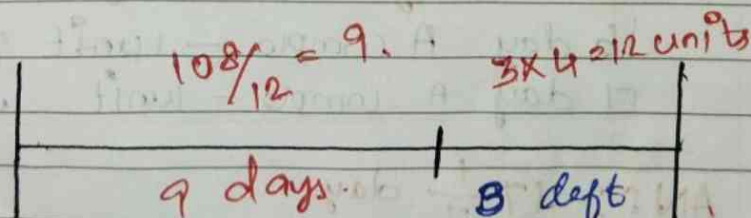 108/12 = 9.
3x4=12 units
9 days.
B left